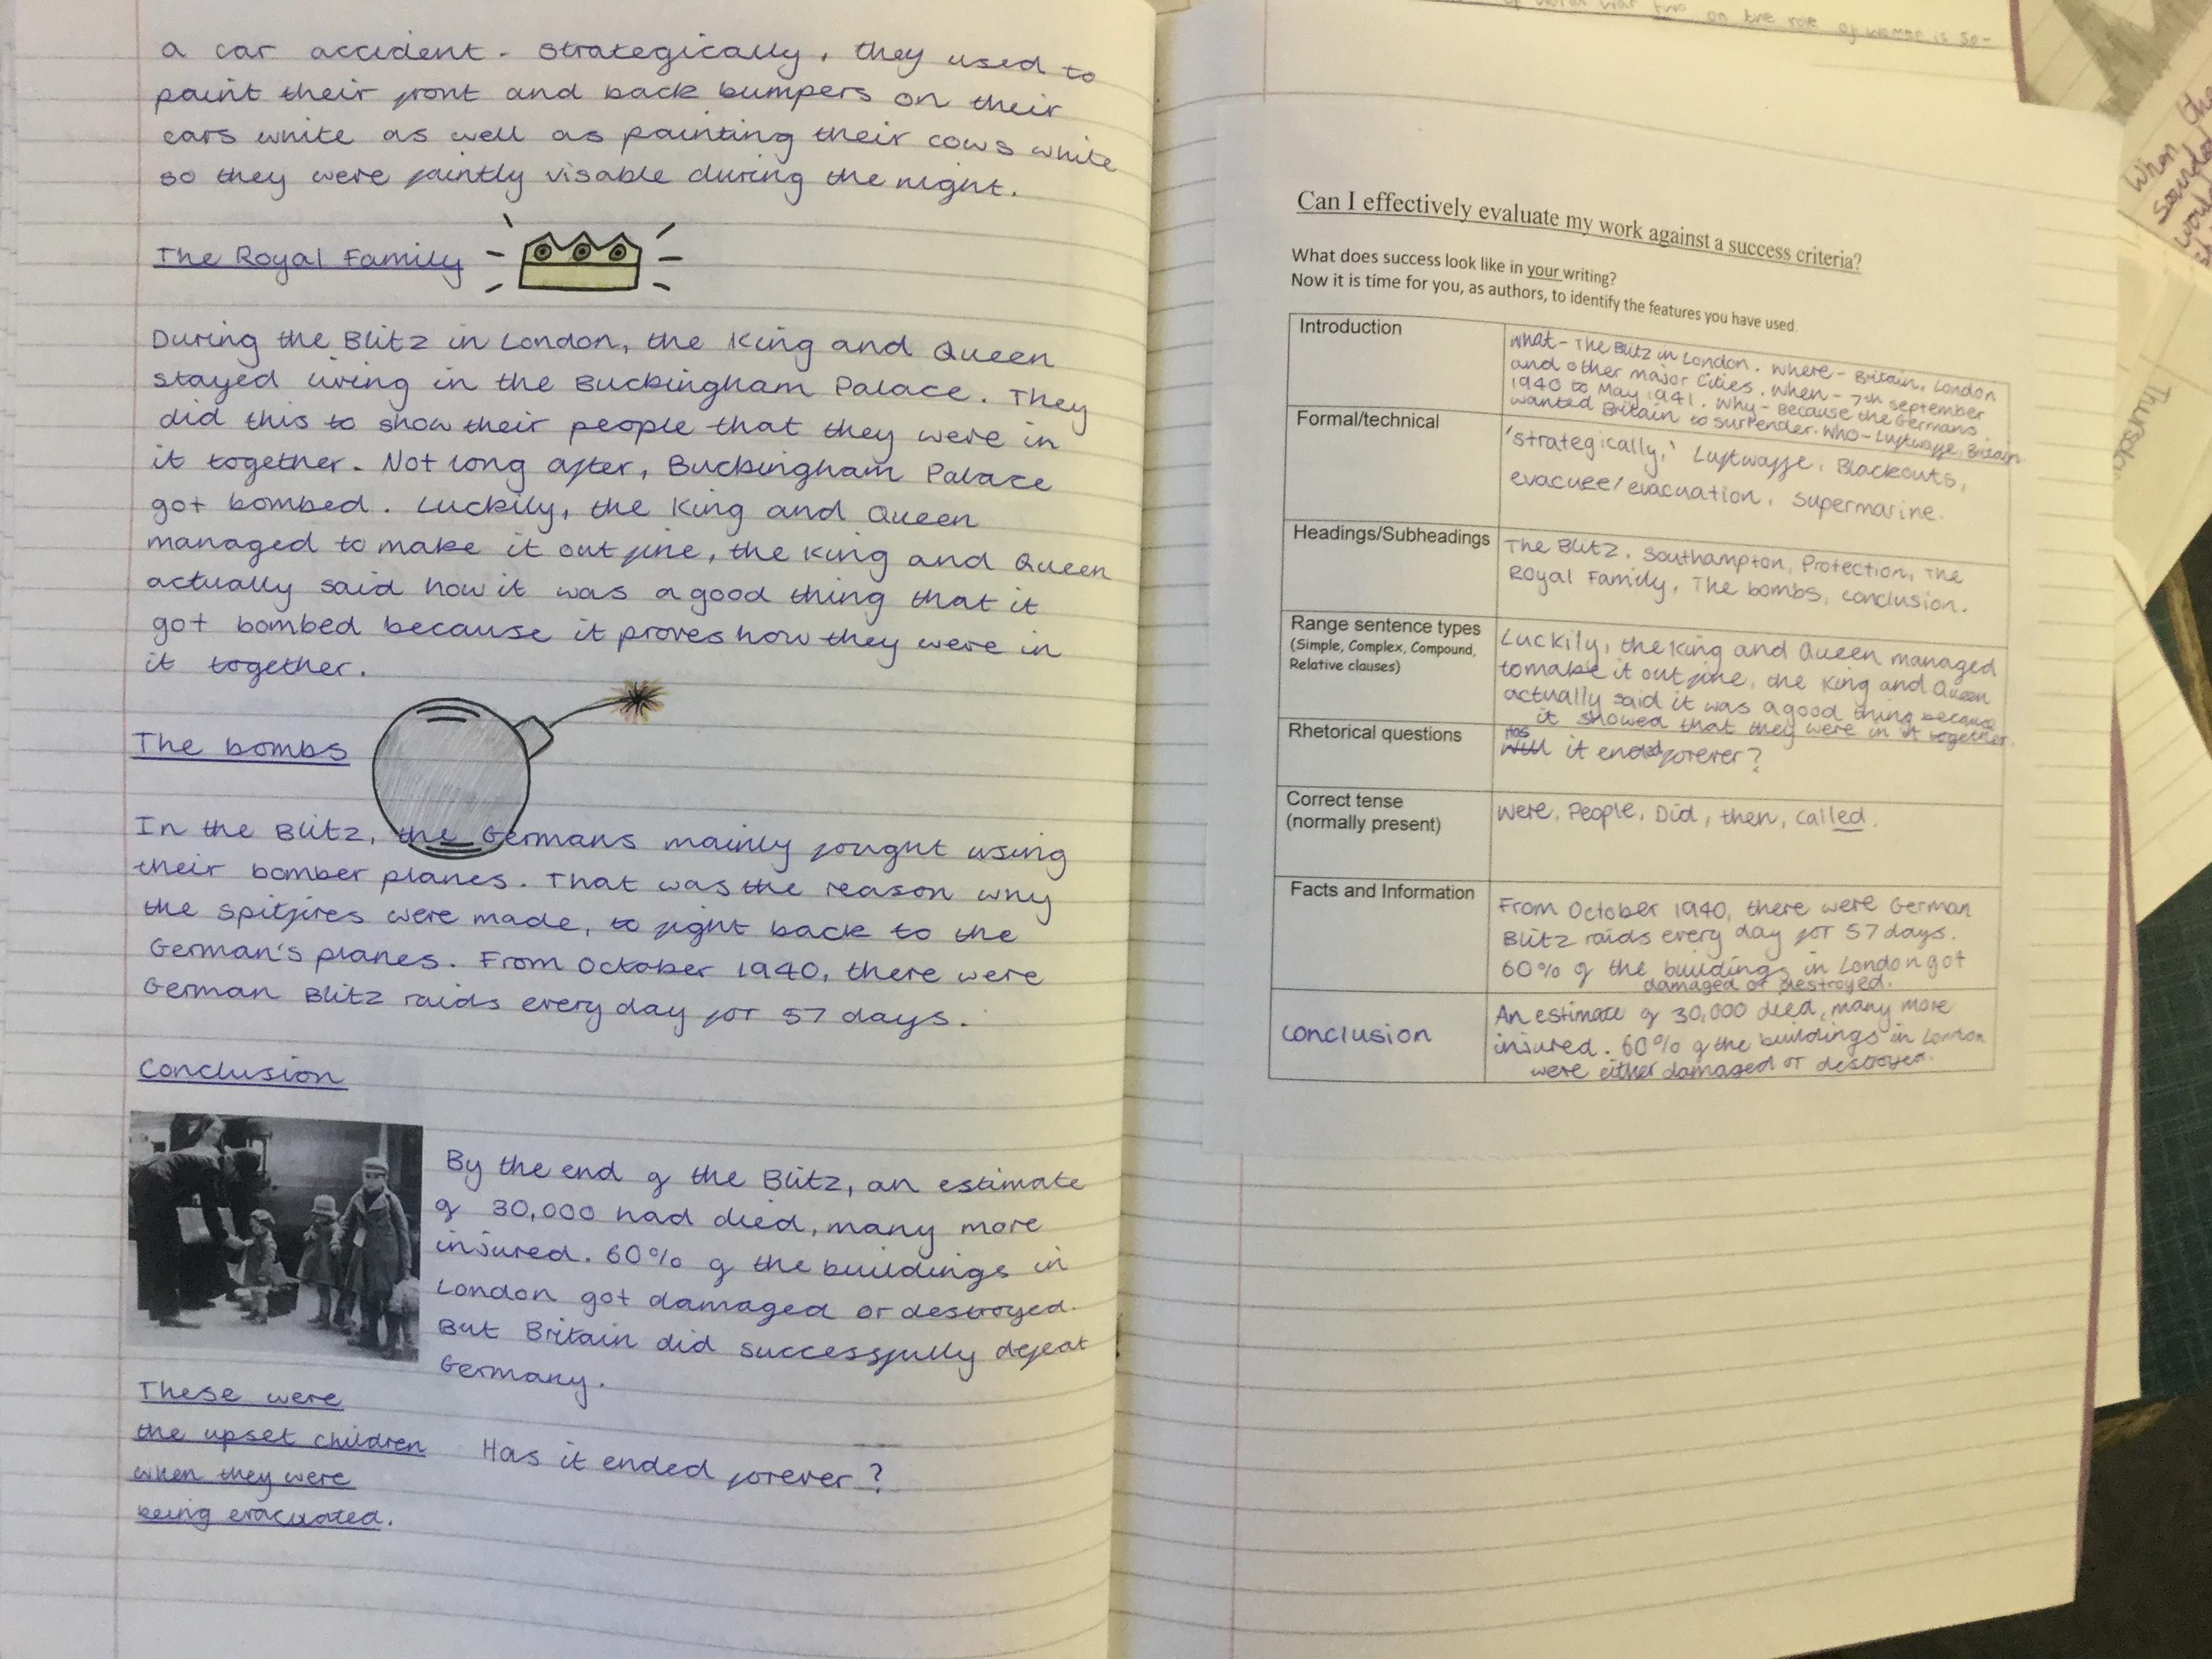 a car accident. Strategically, they used to
paint their front and back bumpers on their
cars white as well as painting their cows white
so they were faintly visable during the night.
The Royal Family
During the Blitz in London, the King and Queen
stayed living in the Buckingham Palace. They
did this to show their people that they were in
it together. Not long after, Buckingham Palace
got bombed. Luckily, the King and Queen
managed to make it out fine, the King and Queen
actually said how it was a good thing that it
got bombed because it proves how they were in
it together.
The bombs
In the Blitz, the Germans mainly fought using
their bomber planes. That was the reason why
the spitfires were made, to fight back to the
German's planes. From October 1940, there were
German Blitz raids every day for 57 days.
Conclusion
By the end of the Blitz, an estimate
of 30,000 had died, many more
injured. 60% of the buildings in
London got damaged or destroyed.
But Britain did successfully defeat
Germany.
These were
the upset children
when they were
being evacuated.
Has it ended forever?
two on the role of women is so-
Can I effectively evaluate my work against a success criteria?
What does success look like in your writing?
Now it is time for you, as authors, to identify the features you have used.
Introduction
What - The Blitz in London. Where - Britain, London
and other major Cities. When - 7th september
1940 to May 1941. Why - Because the Germans
wanted Britain to surrender. Who - Luftwaffe, Britain
Formal/technical
'strategically,' Luftwaffe, Blackouts,
evacuee/evacuation, supermarine.
Headings/Subheadings
The Blitz, Southampton, Protection, The
Royal Family, The bombs, conclusion.
Range sentence types
(Simple, Complex, Compound,
Relative clauses)
Luckily, the King and Queen managed
to make it out fine, the King and Queen
actually said it was a good thing because
it showed that they were in it together.
Rhetorical questions
Has
Will it ended forever?
Correct tense
(normally present)
Were, People, Did, then, called.
Facts and Information
From October 1940, there were German
Blitz raids every day for 57 days.
60% of the buildings in London got
damaged or destroyed.
conclusion
An estimate of 30,000 died, many more
injured. 60% of the buildings in London
were either damaged or destroyed.
When the